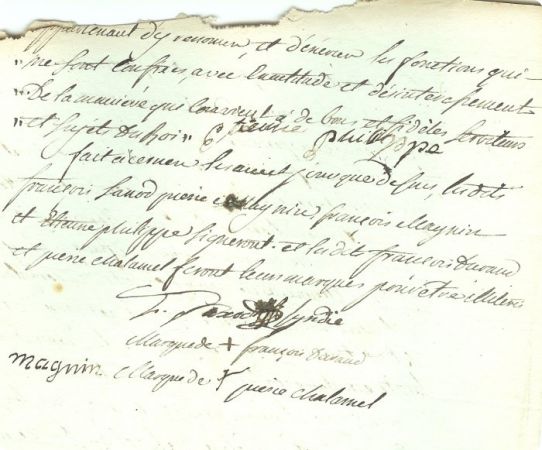 appartenant d'y renoncer et d'exercer les fonctions qui
" me sont confiées, avec exactitude et désinteressement
" De la maniere qui convient à de bons et fidèles serviteurs
" et sujets Du Roi "
etienne philippe
fait les an et jour que dessus, lesdits
françois Favod pierre Maynin, françois Maynin
et Etienne philippe signeront. et lesdits françois Davaud
et pierre Chalamel feront leurs marques pour être illiterés
f. syndic
Marque de + françois Davaud
magnin Marque de + pierre Chalamel